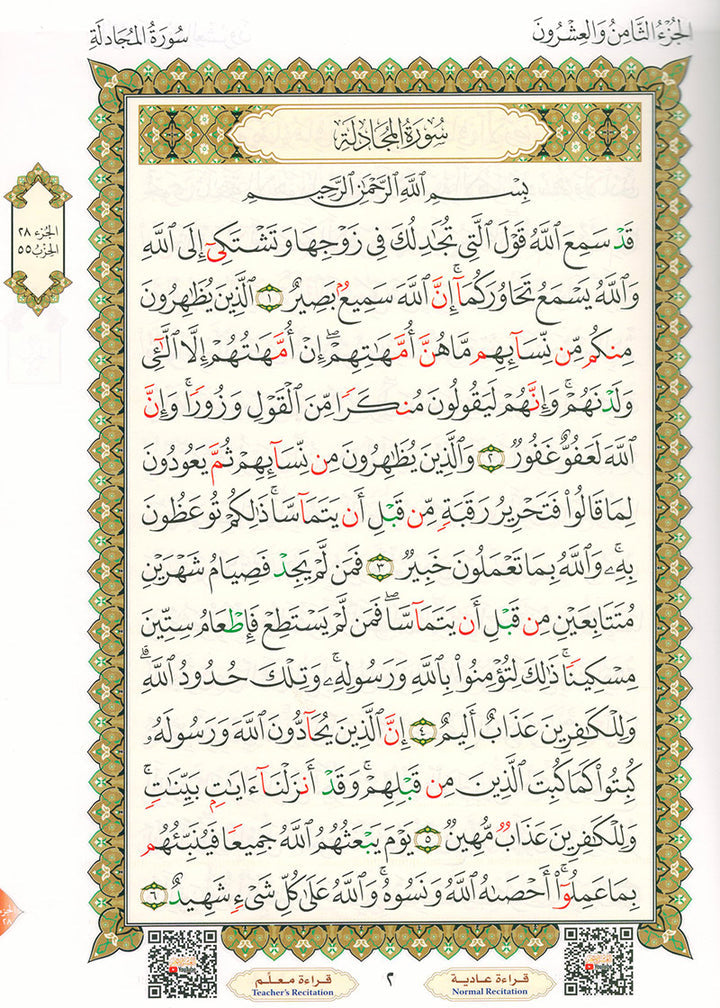 الجزء الثامن والعشرون
سورة المجادلة
سُورَةُ المُجَادلَة
بِسْمِ ٱللَّهِ ٱلرَّحْمَٰنِ ٱلرَّحِيمِ
الجزء ٢٨
الحزب ٥٥
قَدْ سَمِعَ ٱللَّهُ قَوْلَ ٱلَّتِى تُجَٰدِلُكَ فِى زَوْجِهَا وَتَشْتَكِىٓ إِلَى ٱللَّهِ
وَٱللَّهُ يَسْمَعُ تَحَاوُرَكُمَآ ۚ إِنَّ ٱللَّهَ سَمِيعٌۢ بَصِيرٌ ١ ٱلَّذِينَ يُظَٰهِرُونَ
مِنكُم مِّن نِّسَآئِهِم مَّا هُنَّ أُمَّهَٰتِهِمْ ۖ إِنْ أُمَّهَٰتُهُمْ إِلَّا ٱلَّٰٓـِٔى
وَلَدْنَهُمْ ۚ وَإِنَّهُمْ لَيَقُولُونَ مُنكَرًا مِّنَ ٱلْقَوْلِ وَزُورًا ۚ وَإِنَّ
ٱللَّهَ لَعَفُوٌّ غَفُورٌ ٢ وَٱلَّذِينَ يُظَٰهِرُونَ مِن نِّسَآئِهِمْ ثُمَّ يَعُودُونَ
لِمَا قَالُوا۟ فَتَحْرِيرُ رَقَبَةٍ مِّن قَبْلِ أَن يَتَمَآسَّا ۚ ذَٰلِكُمْ تُوعَظُونَ
بِهِۦ ۚ وَٱللَّهُ بِمَا تَعْمَلُونَ خَبِيرٌ ٣ فَمَن لَّمْ يَجِدْ فَصِيَامُ شَهْرَيْنِ
مُتَتَابِعَيْنِ مِن قَبْلِ أَن يَتَمَآسَّا ۖ فَمَن لَّمْ يَسْتَطِعْ فَإِطْعَامُ سِتِّينَ
مِسْكِينًا ۚ ذَٰلِكَ لِتُؤْمِنُوا۟ بِٱللَّهِ وَرَسُولِهِۦ ۚ وَتِلْكَ حُدُودُ ٱللَّهِ ۗ
وَلِلْكَٰفِرِينَ عَذَابٌ أَلِيمٌ ٤ إِنَّ ٱلَّذِينَ يُحَآدُّونَ ٱللَّهَ وَرَسُولَهُۥ
كُبِتُوا۟ كَمَا كُبِتَ ٱلَّذِينَ مِن قَبْلِهِمْ ۚ وَقَدْ أَنزَلْنَآ ءَايَٰتٍۭ بَيِّنَٰتٍ ۚ
وَلِلْكَٰفِرِينَ عَذَابٌ مُّهِينٌ ٥ يَوْمَ يَبْعَثُهُمُ ٱللَّهُ جَمِيعًا فَيُنَبِّئُهُم
بِمَا عَمِلُوٓا۟ ۚ أَحْصَىٰهُ ٱللَّهُ وَنَسُوهُ ۚ وَٱللَّهُ عَلَىٰ كُلِّ شَىْءٍ شَهِيدٌ ٦
قراءة عادية
Normal Recitation
٢
قراءة معلّم
Teacher's Recitation
YouTube
YouTube